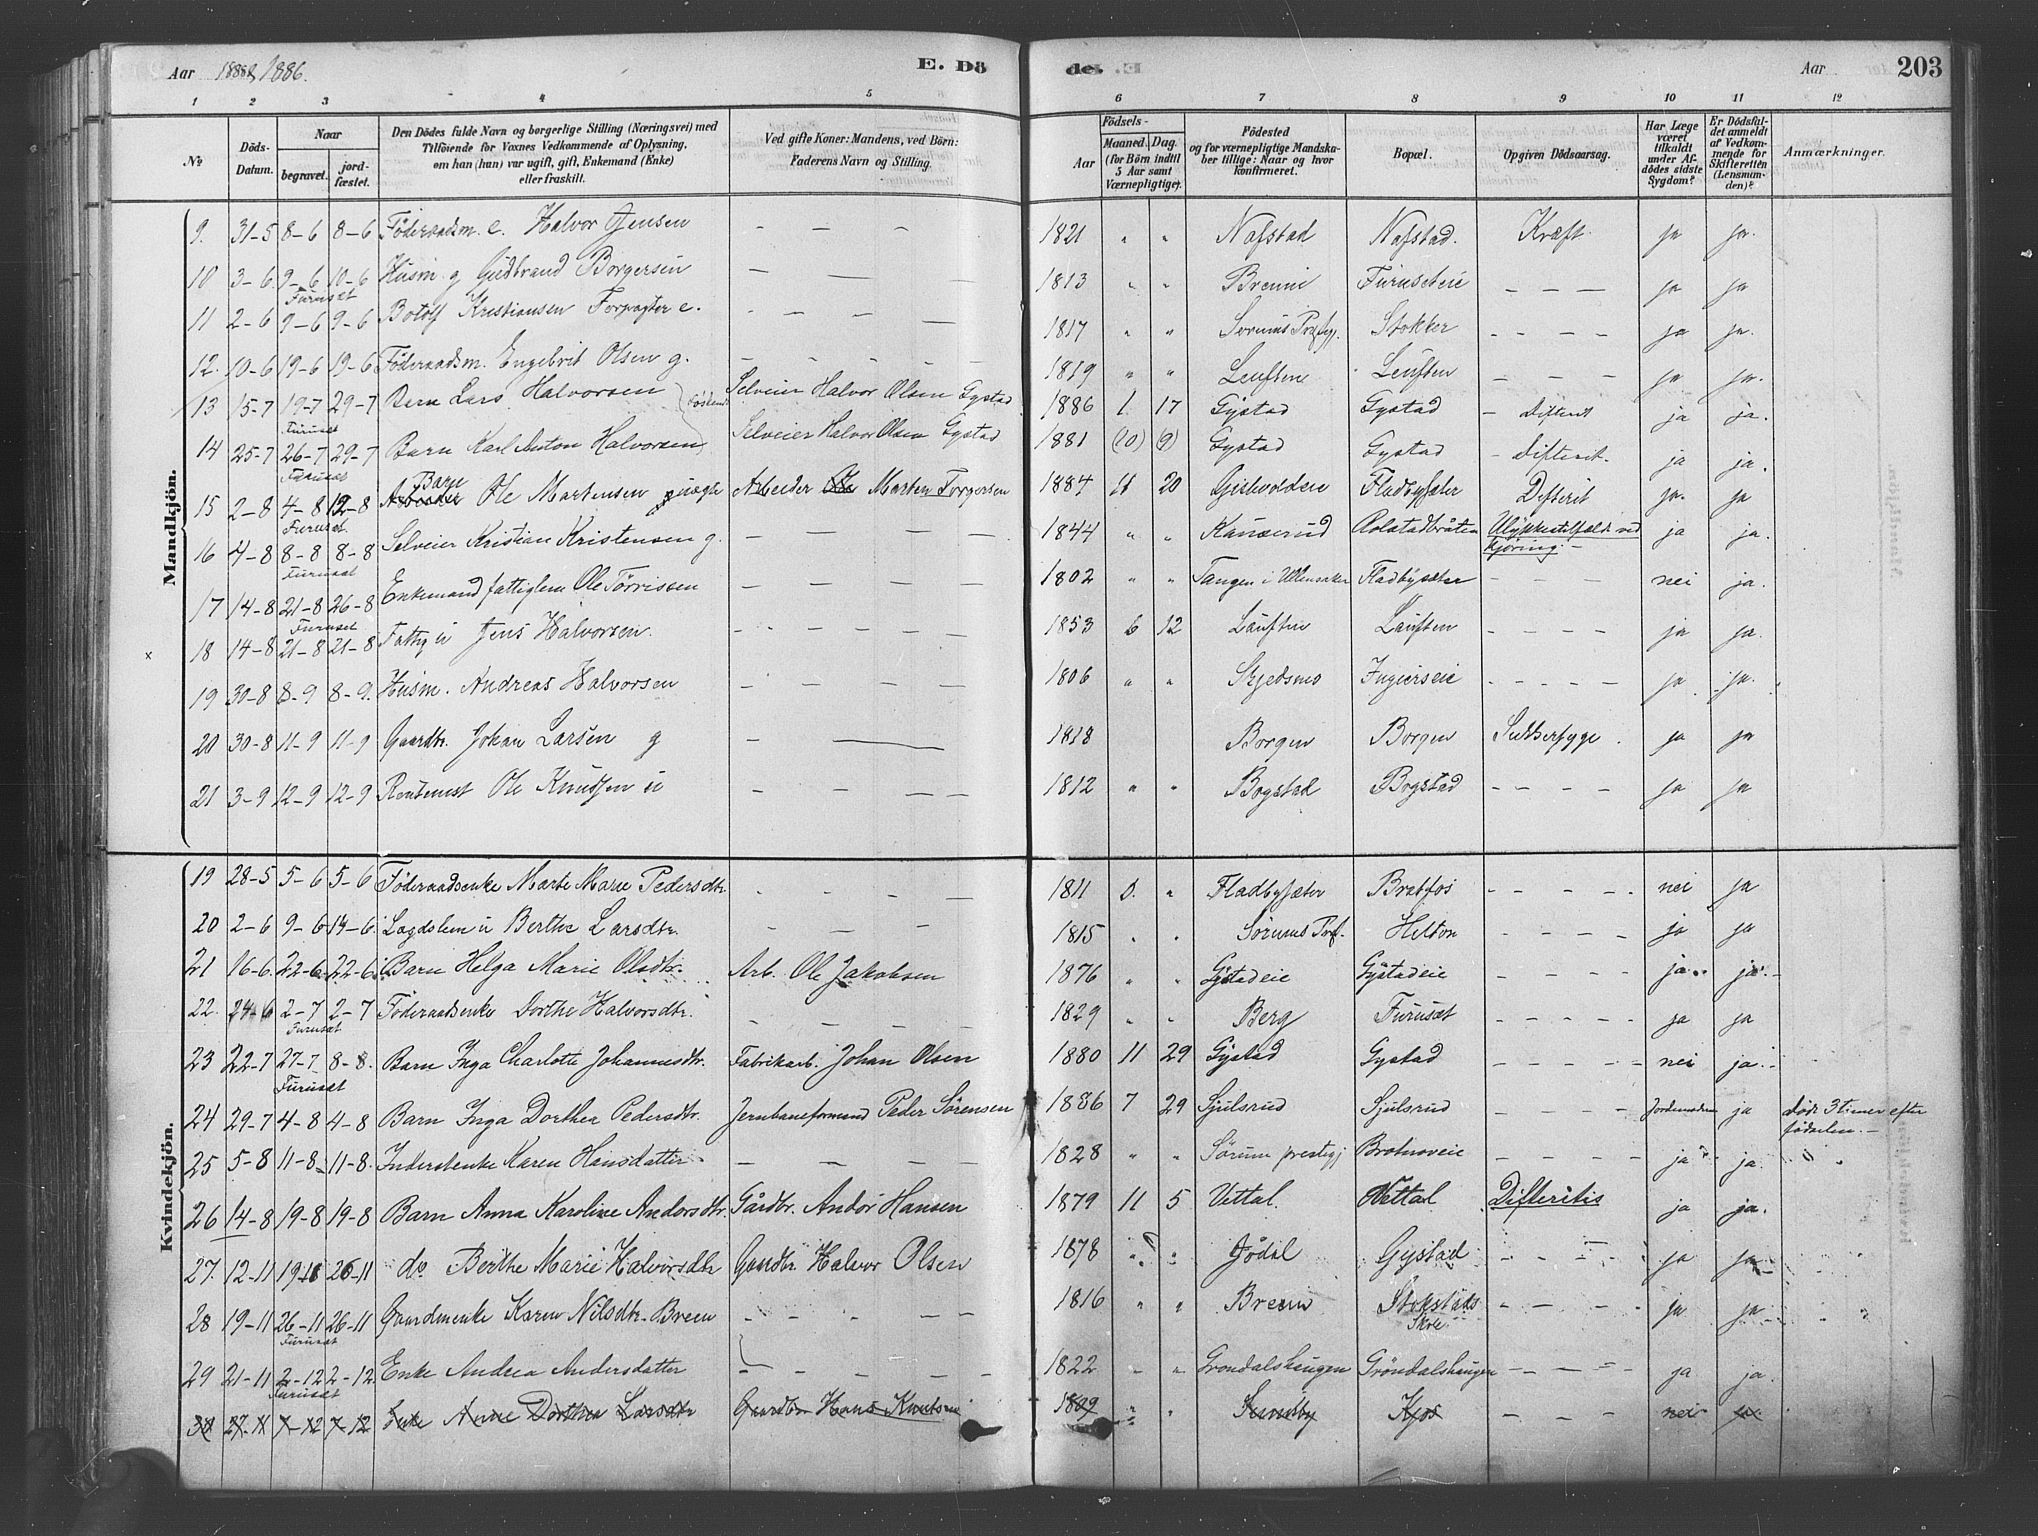 Aar 1886.
E. Dö
de.
Aar
203
1 2 3 4 5 6 7 8 9 10 11 12
No
Döds-Datum.
Naar
begravet.
jordfæstet.
Den Dödes fulde Navn og borgerlige Stilling (Næringsvei) med
Tilföiende for Voxnes Vedkommende af Oplysning,
om han (hun) var ugift, gift, Enkemand (Enke)
eller fraskilt.
Ved gifte Koner: Mandens, ved Börn:
Faderens Navn og Stilling.
Födsels-
Aar
Maaned. Dag.
(for Börn indtil
5 Aar samt
Værnepligtige).
Födested
og for værnepligtige Mandska-
ber tillige: Naar og hvor
konfirmeret.
Bopæl.
Opgiven Dödsaarsag.
Har Læge
været
tilkaldt
under Af-
dödes sidste
Sygdom?
Er Dödsfal-
det anmeldt
af Vedkom-
mende for
Skifteretten
(Lensman-
den)?
Anmærkninger.
Mandkjön.
9. 31-5 8-6 8-6 Föderaadsm. e. Halvor Jensen - - - 1821 " " Nafstad Nafstad. Kræft. ja ja.
10 3-6 9-6 10-6 Husm. g Gudbrand Borgersen - - - 1813 " " Brenni Furuseteie - - - ja ja
Furuset
11 2-6 9-6 9-6 Botolf Kristiansen Forpagter e. - - - - 1817 " " Sørums Præstgj. Stokker - - - - ja ja.
12. 10-6 19-6 19-6 Föderaadsm. Engebrit Olsen g. - - - - - 1819 " " Leuften Leuften - - - ja ja.
13 15-7 19-7 29-7 Barn Lars Halvorsen Selveier Halvor Olsen Gystad 1886 1. 17 Gystad Gystad - Difterit ja ja.
Furuset
14 25-7 26-7 29-7 Barn Karl Anton Halvorsen Selveier Halvor Olsen Gystad 1881 (10) (9) Gystad Gystad - Difterit. ja ja.
Furuset
Barn
15 2-8 4-8 12-8 Arbeider Ole Martensen uægte Arbeider Ole Marten Torgersen 1884 11 20 Fladbysæter Difterit ja. ja
Furuset
16 4-8 8-8 8-8 Selveier Kristian Kristensen g. - - - - 1844 " " Kauserud Rolstadbråten Ulykkestilfælde ved ja ja.
Furuset
kjøring. -
17 14-8 21-8 26-8 Enkemand fattiglem Ole Törrissen - - - - 1802 " " Tangen i Ullensaker Fladbysæter - - - - nei ja.
Furuset
x 18 14-8 21-8 21-8 Fattig u Jens Halvorsen. - - - - - 1853 6 12 Lauften Lauften - - - - ja ja.
19 30-8 8-9 8-9. Husm. Andreas Halvorsen - - - - - 1806 " " Skjedsmo Ingierseie - - - - ja ja.
20 30-8 11-9 11-9 Gaardbr. Johan Larsen g - - 1818 Borgen Borgen Sukkersyge. ja ja
21 3-9 12-9 12-9 Rentenist Ole Knudsen u - - - - 1812 " " Bogstad Bogstad - - - - ja ja
Kvindekjön.
19 28-5 5-6 5-6 Föderaadsenke Marte Marie Pedersdtr. - - - - 1811 0. " Fladbysæter Bratfos - - - - nei ja
20 2-6 9-6 14-6. Lagdslem u Berthe Larsdtr. - - - 1815 " " Sörums Prf. Helton - - - - ja ja
21 16-6. 22-6 22-6 Barn Helga Marie Olsdtr. Arb. Ole Jakobsen 1876 " " Gystadeie Gystadeie ja. ja. -
22. 24-6 2-7 2-7 Föderaadsenke Dorthe Halvorsdtr. - - - - 1829 " " Berg Furuset - - - - ja ja
Furuset
23 22-7 27-7 8-8. Barn Inga Charlotte Johannesdtr. Fabrikarb. Johan Olsen 1880 11 29 Gystad Gystad - - - - nei ja.
Furuset
24 29-7 4-8 4-8 Barn Inga Dorthea Pedersdtr. Jernbaneformand Peder Sörensen 1886 7 29 Sjulsrud Sjulsrud - - - - Jordemoderen ja døde 3 timer efter
fødselen. -
25 5-8 11-8 11-8. Inderstenke Karen Hansdatter - - - - 1828 " " Sörum prestegj Brotnoveie - - - - ja ja.
26 14-8 19-8 19-8 Barn Anna Karoline Andorsdtr. Gårdbr. Andor Hansen 1879 11 5 Vettal. Vettal Difteritis ja ja.
27. 12-11 19-11 26-11 do Berthe Marie Halvorsdtr Gaardbr Halvor Olsen 1878 " " Jödal Gystad - - - ja ja.
28 19-11 26-11 26-11 Gaardmenke Karen Nilsdtr. Breen - - - - 1816 " " Breen Stokstads - - - - ja ja.
Furuset
Skole.
29 21-11 2-12 2-12. Enke Andrea Andersdatter - - - - - 1822 " " Grondalshaugen Gröndalshaugen - - - - ja ja.
Furuset
30 27-11 7-12 7-12 Enke Anne Dorthea Larsdtr Gaardbr Hans Knutsen 1809 " " Sundby Kjos - - - - nei ja.